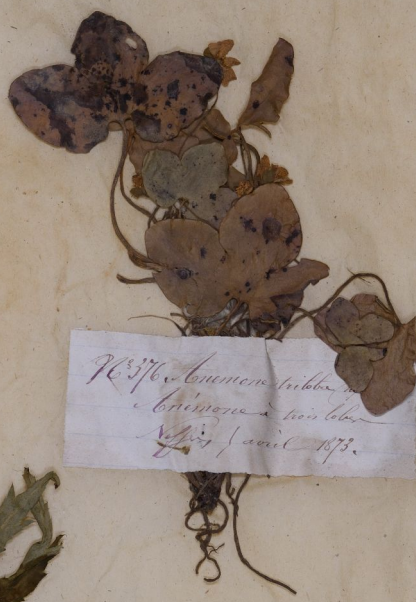 Nº 376 Anemone triloba
Anémone à trois lobes
avril 1873.